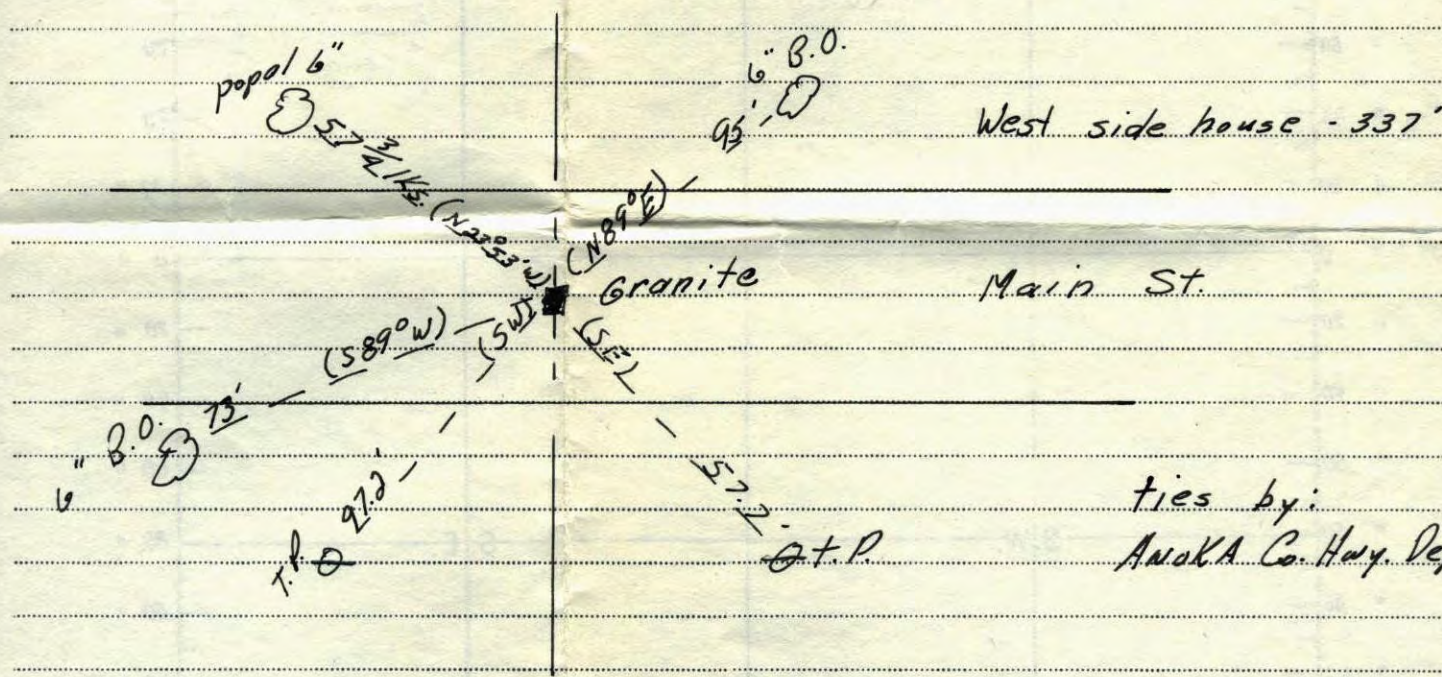 popal 6"
6" B.O.
57 3/4 lks. (N23°53'W)
95'
West side house - 337'
(N89°E)
Granite
Main St.
(S89°W)
(SW)
(SE)
6" B.O. 73'
T.P. 97.2'
57.2'
T.P.
ties by:
ANOKA Co. Hwy. Dep